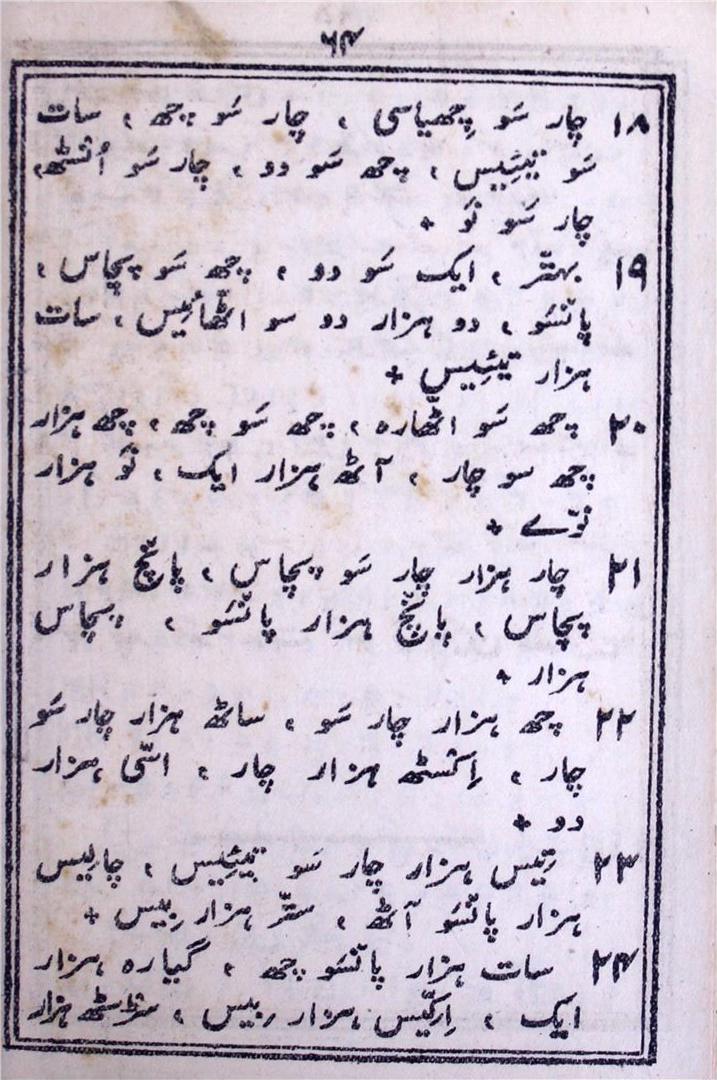 ۶۴
۱۸ چار سَو چھیاسی ، چار سَو چھ ، سات
سَو تیئیس ، چھ سَو دو ، چار سَو اُنسٹھ ،
چار سَو نَو +
۱۹ بہتّر ، ایک سَو دو ، چھ سَو پچاس ،
پانسَو ، دو ہزار دو سو اٹھائیس ، سات
ہزار تیئیس +
۲۰ چھ سَو اٹھارہ ، چھ سَو چھ ، چھ ہزار
چھ سو چار ، آٹھ ہزار ایک ، نَو ہزار
نوّے +
۲۱ چار ہزار چار سَو پچاس ، پانچ ہزار
پچاس ، پانچ ہزار پانسَو ، پچاس
ہزار +
۲۲ چھ ہزار چار سَو ، ساٹھ ہزار چار سَو
چار ، اِکسٹھ ہزار چار ، اسّی ہزار
دو +
۲۳ تِیس ہزار چار سَو تیئیس ، چالیس
ہزار پانسَو آٹھ ، ستّر ہزار بیس +
۲۴ سات ہزار پانسَو چھ ، گیارہ ہزار
ایک ، اِکیّس ہزار بیس ، سڑسٹھ ہزار